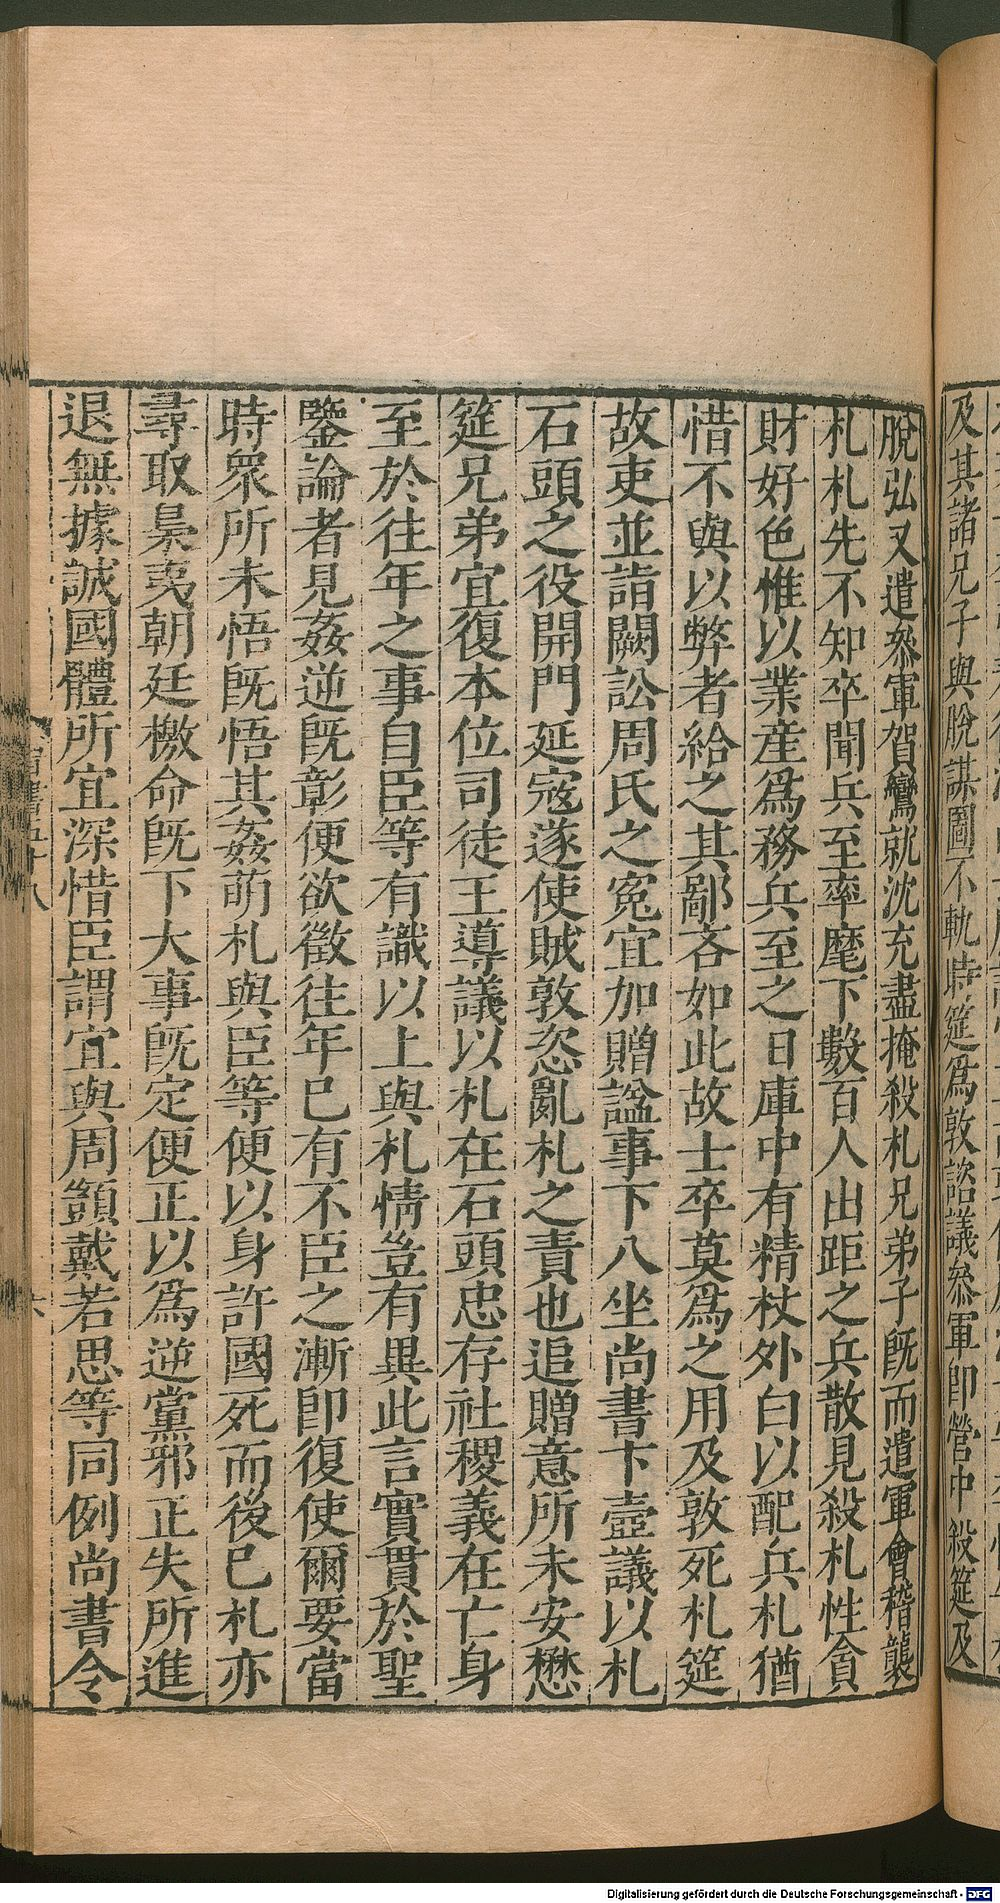 及其諸兄子與脫謀圖不軌時筵爲敦諮議叅軍即營中殺筵及
脫弘又遣叅軍賀鸞就沈充盡掩殺札兄弟子旣而遣軍會稽襲
札札先不知卒聞兵至率麾下數百人出距之兵散見殺札性貪
財好色惟以業産爲務兵至之日庫中有精杖外白以配兵札猶
惜不與以弊者給之其鄙吝如此故士卒莫爲之用及敦死札筵
故吏並詣闕訟周氏之寃宜加贈諡事下八坐尚書卞壼議以札
石頭之役開門延寇遂使賊敦恣亂札之責也追贈意所未安懋
筵兄弟宜復本位司徒王導議以札在石頭忠存社稷義在亡身
至於往年之事自臣等有識以上與札情豈有異此言實貫於聖
鑒論者見姦逆旣彰便欲徵往年已有不臣之漸即復使爾要當
時衆所未悟旣悟其姦萌札與臣等便以身許國死而後已札亦
尋取梟夷朝廷檄命旣下大事旣定便正以爲逆黨邪正失所進
退無據誠國體所宜深惜臣謂宜與周顗戴若思等同例尚書令
Digitalisierung gefördert durch die Deutsche Forschungsgemeinschaft - DFG